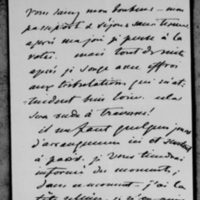 vous savez mon bonheur – mon
passeport & séjour
après ma joie je pense à la
vôtre. mais tout de suite
après je songe avec effroi
aux tribulations qui m'at-
tendent bien loin. cela
sera rude à traverser!
il me faut quelques jours
d'arrangement ici et
à paris. je vous tiendrai
informé du moment;
dans ce moment – j'ai la
tête